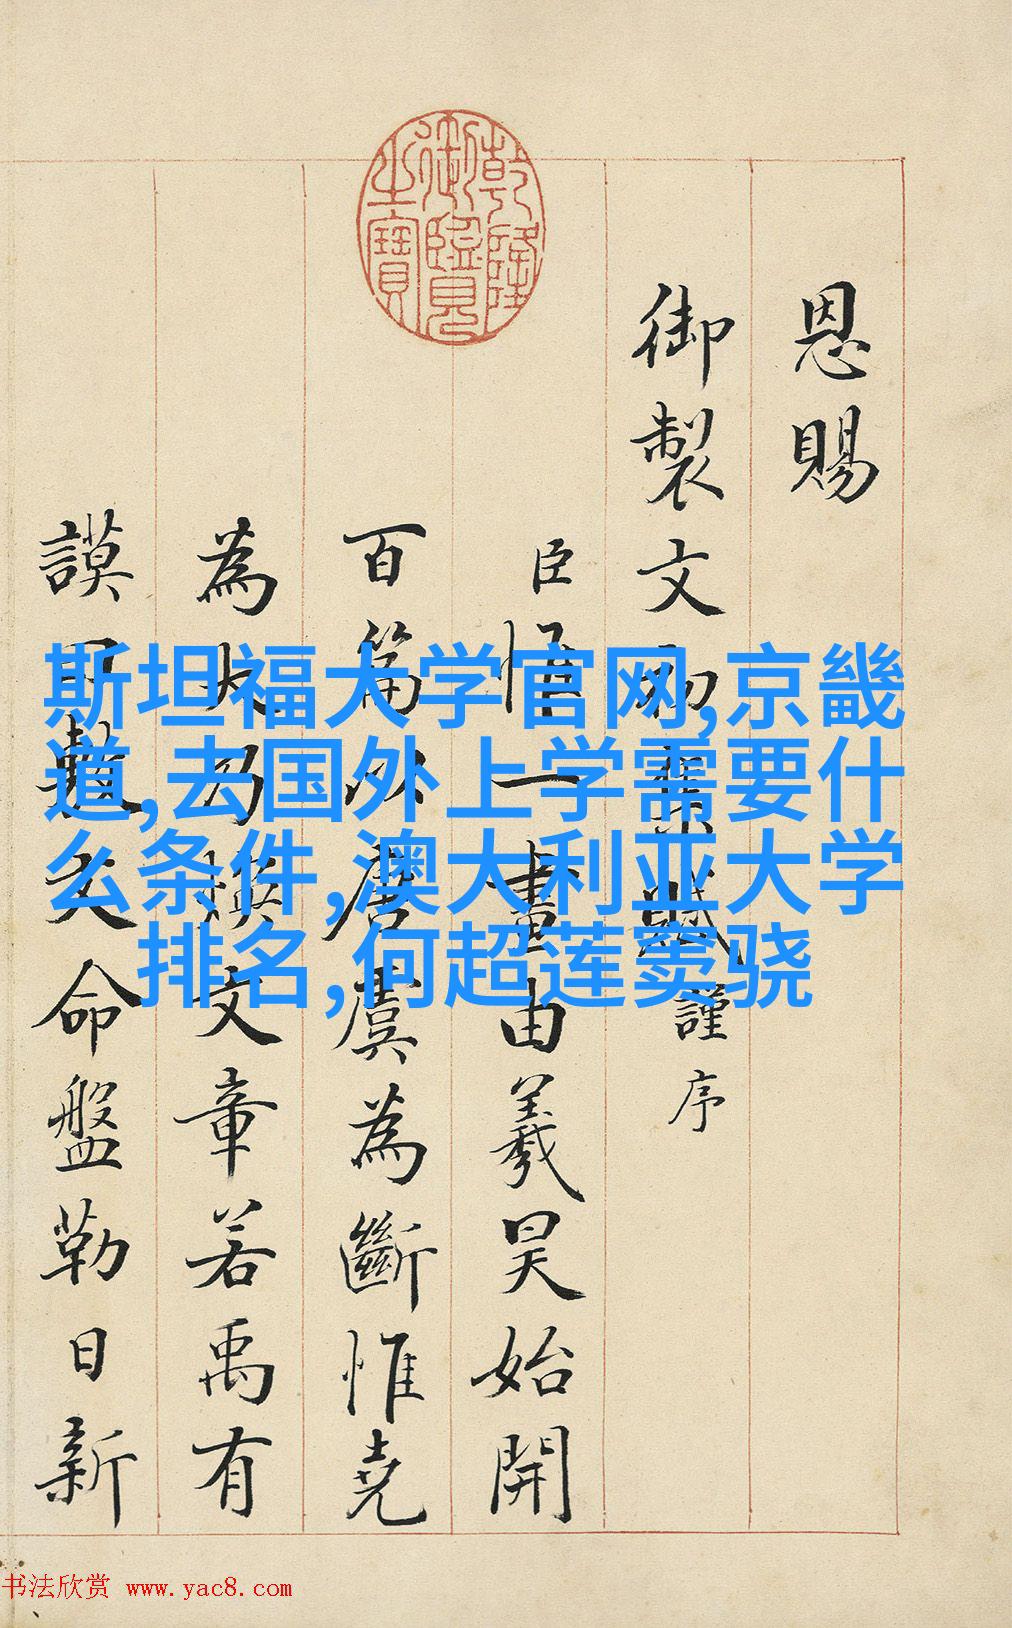 乾隆御覽之寶
恩賜
御製文初集賦謹序
臣一畫由羲昊始開
百篇以唐虞為斷惟堯
為大乃煥文章若禹有
謨用敷文命盤勒日新
斯坦福大学官网,京畿
道,去国外上学需要什
么条件,澳大利亚大学
排名,何超莲窦骁
书法欣赏 www.yac8.com